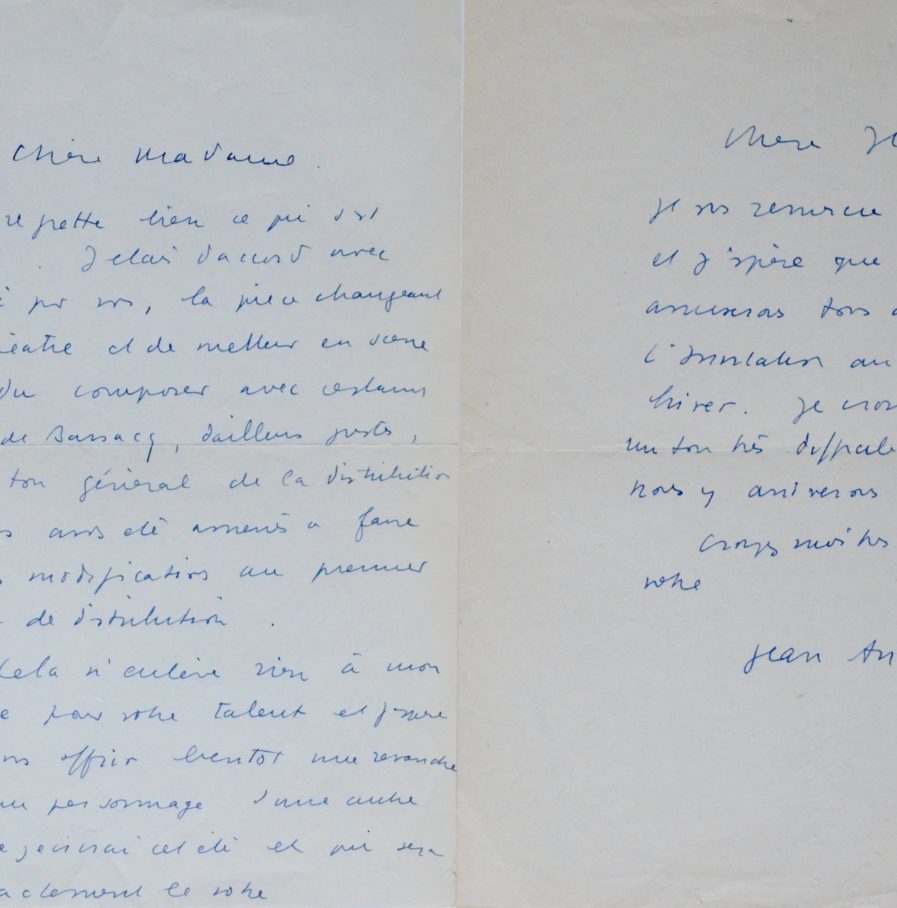 Chère Madame.
regrette bien ce qui est
J'étais d'accord avec
par vs, la pièce changeant
et de metteur en scène
du composer avec certains
de Barsacq, d'ailleurs justes,
ton général de la distribution
avs été amenés a faire
modifications au premier
de distribution.
Cela n'enlève rien à mon
pour votre talent et j'espère
offrir bientot une revanche
personnage d'une autre
j'écrirai cet été et qui sera
le votre
Chere
je vs remercie
et j'espère que
amuserons tous
L'Invitation au
hiver. Je crois
un ton très difficile
nous y arriverons
Croyez moi très
votre
Jean An